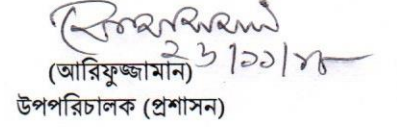 ২৬/১১/১৮
(আরিফুজ্জামান)
উপপরিচালক (প্রশাসন)